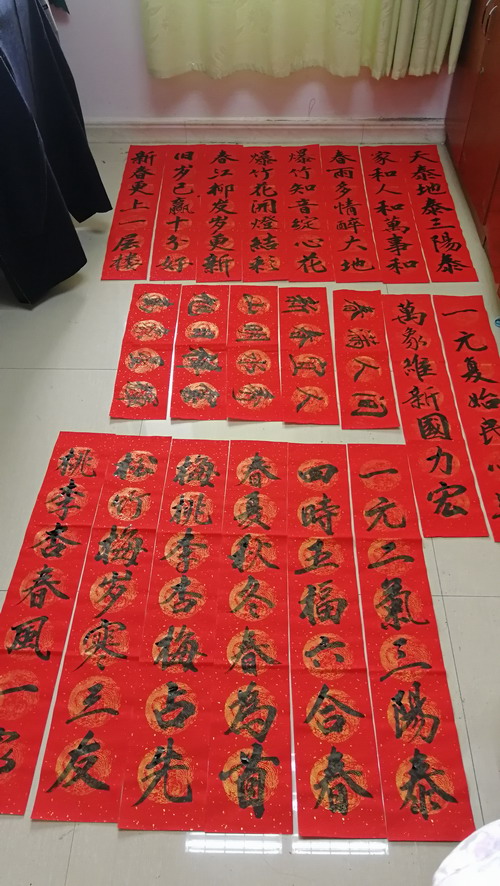 天泰地泰三陽泰
家和人和萬事和
春雨多情醉大地
爆竹知音綻心花
爆竹花開燈結彩
春江柳发岁更新
旧岁已赢十分好
新春更上一层楼
一元复始民心
萬象維新國力宏
春满人间
新春宜人
一元二氣三陽泰
四時五福六合春
春夏秋冬春為首
梅桃李杏梅占先
松竹梅岁寒三友
桃李杏春風一家